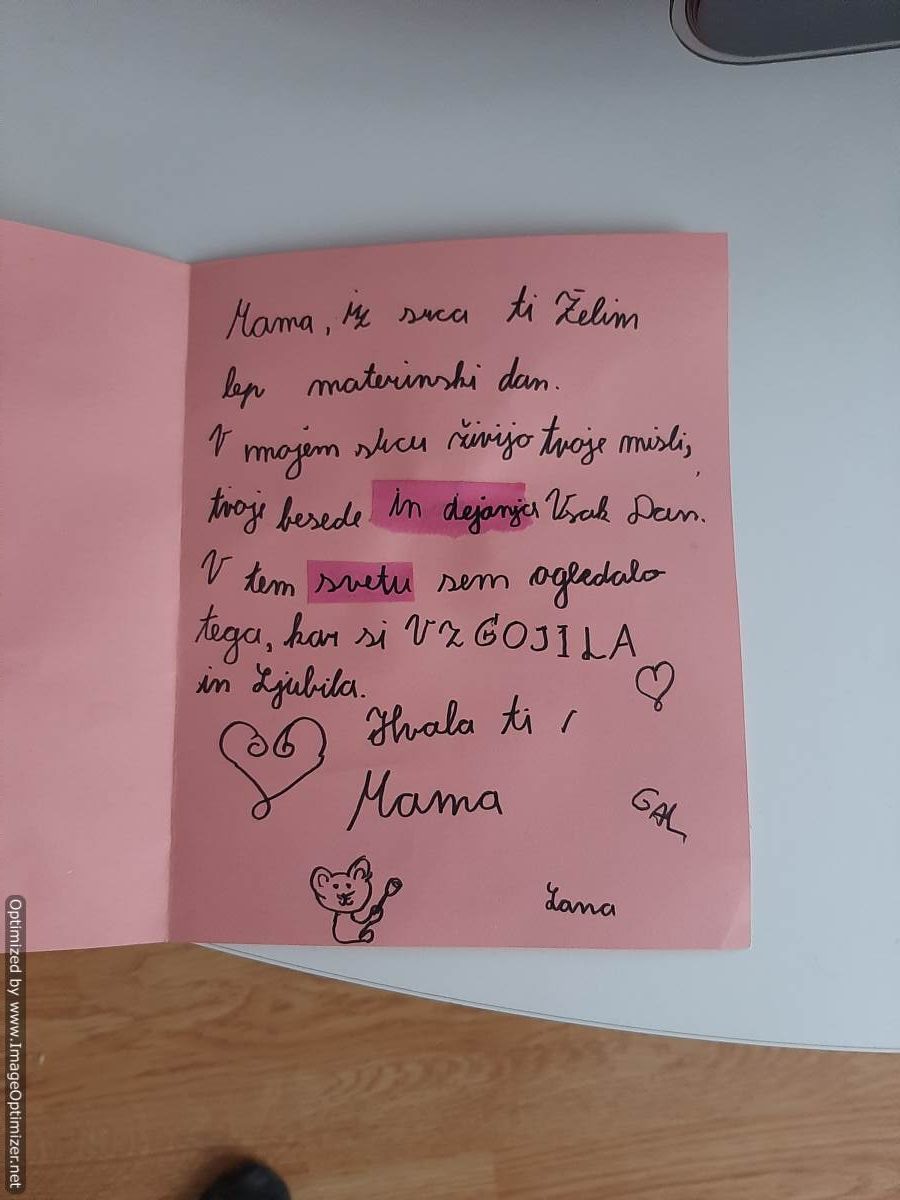 Mama, iz srca ti Želim
lep materinski dan.
V mojem srcu živijo tvoje misli,
tvoje besede in dejanja Vsak Dan.
V tem svetu sem ogledalo
tega, kar si VZGOJILA
in Ljubila.
Hvala ti
Mama
GAL
Lana
Optimized by www.ImageOptimizer.net